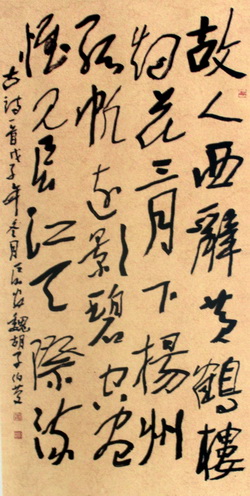 故人西辭黄鶴樓
烟花三月下揚州
孤帆遠景碧空盡
惟見長江天際流
古詩一首戊子年冬月 魏胡子